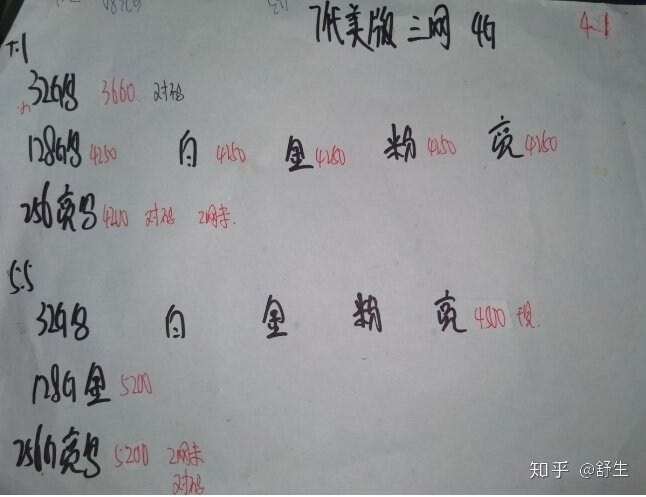 7代美版 三网 4G 4.1
32G黑 3660 对码
128G黑 4250 白 4250 金 4250 粉 4250 亮 4260
256亮黑 4200 对码 2网卡.
5.5
32G黑 白 金 粉 亮 4800
128G金 5200
256G亮黑 5200 2网卡
对码
知乎 @舒生